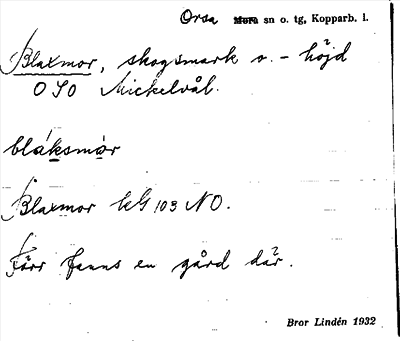 Orsa Mora sn o. tg, Kopparb. l.
Blaxmor, skogsmark o. - höjd
OSO Mickelvål.
bláksmòr
Blaxmor kG 103 NO.
Förr fanns en gård där.
Bror Lindén 1932